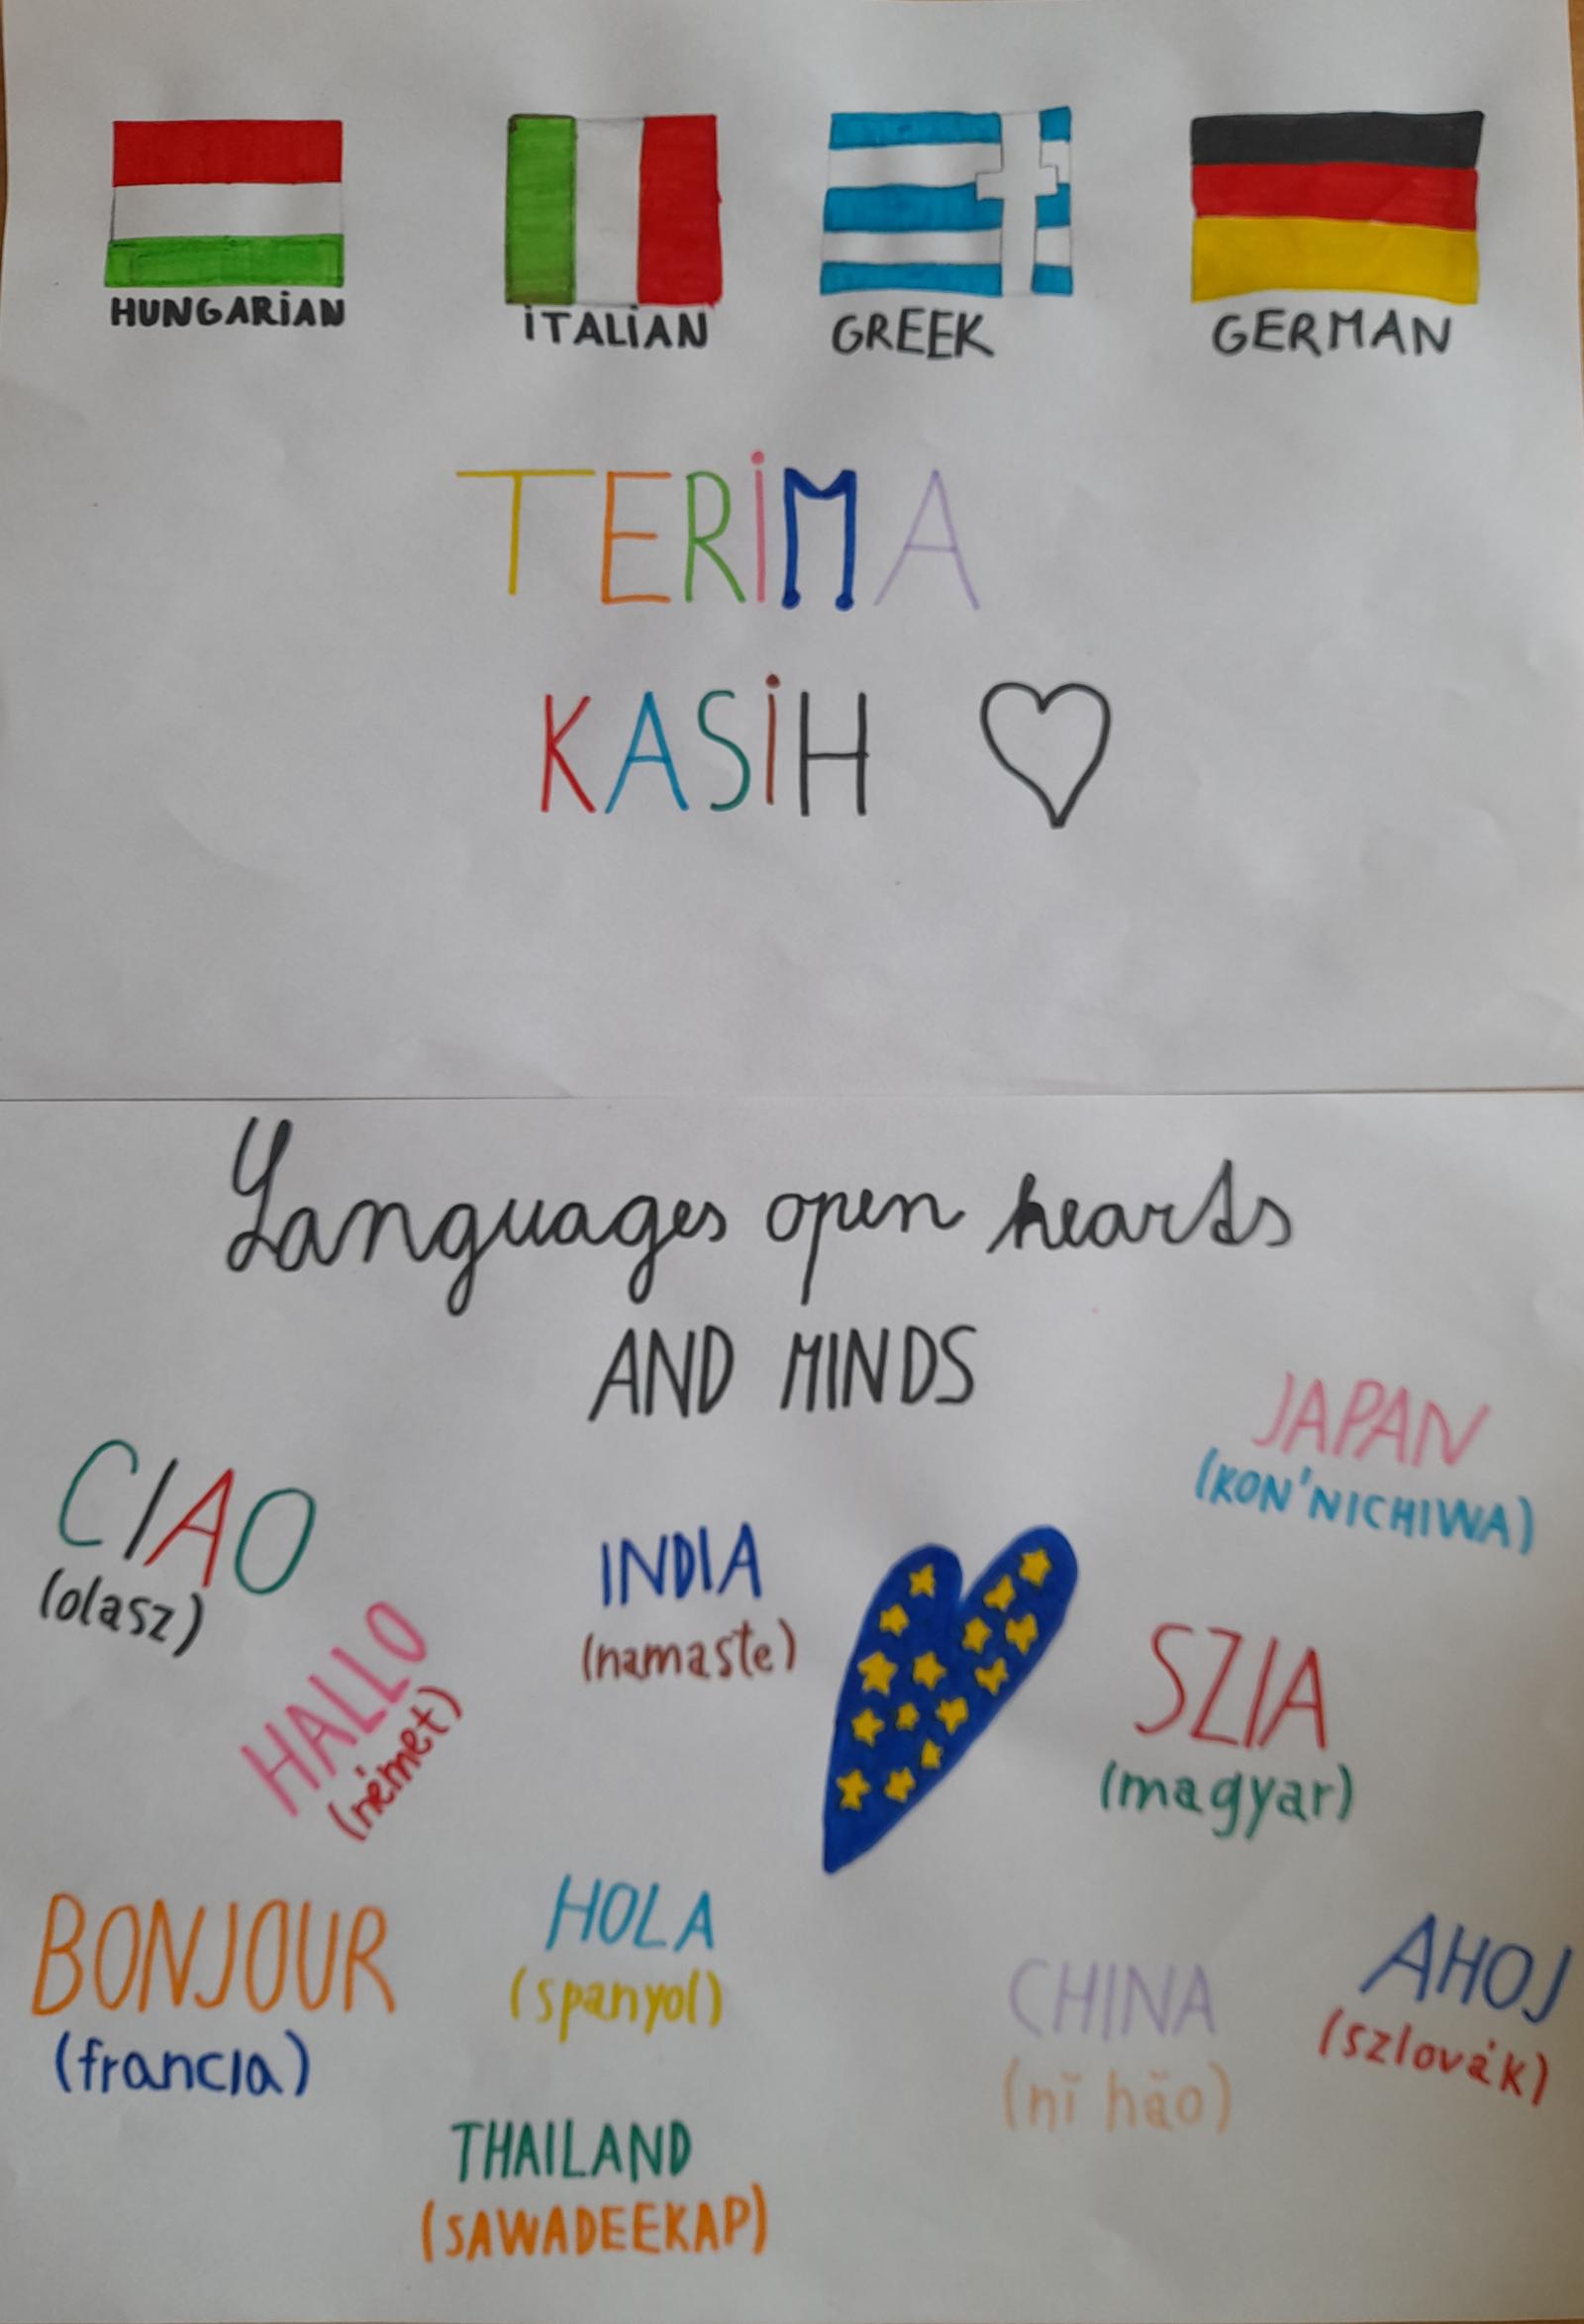 HUNGARIAN
ITALIAN
GREEK
GERMAN
TERIMA
KASIH
Languages open hearts
AND MINDS
JAPAN
(KON'NICHIWA)
CIAO
(olasz)
INDIA
(namaste)
HALLO
(német)
SZIA
(magyar)
BONJOUR
(francia)
HOLA
(spanyol)
CHINA
(nĭ hăo)
AHOJ
(szlovák)
THAILAND
(SAWADEEKAP)